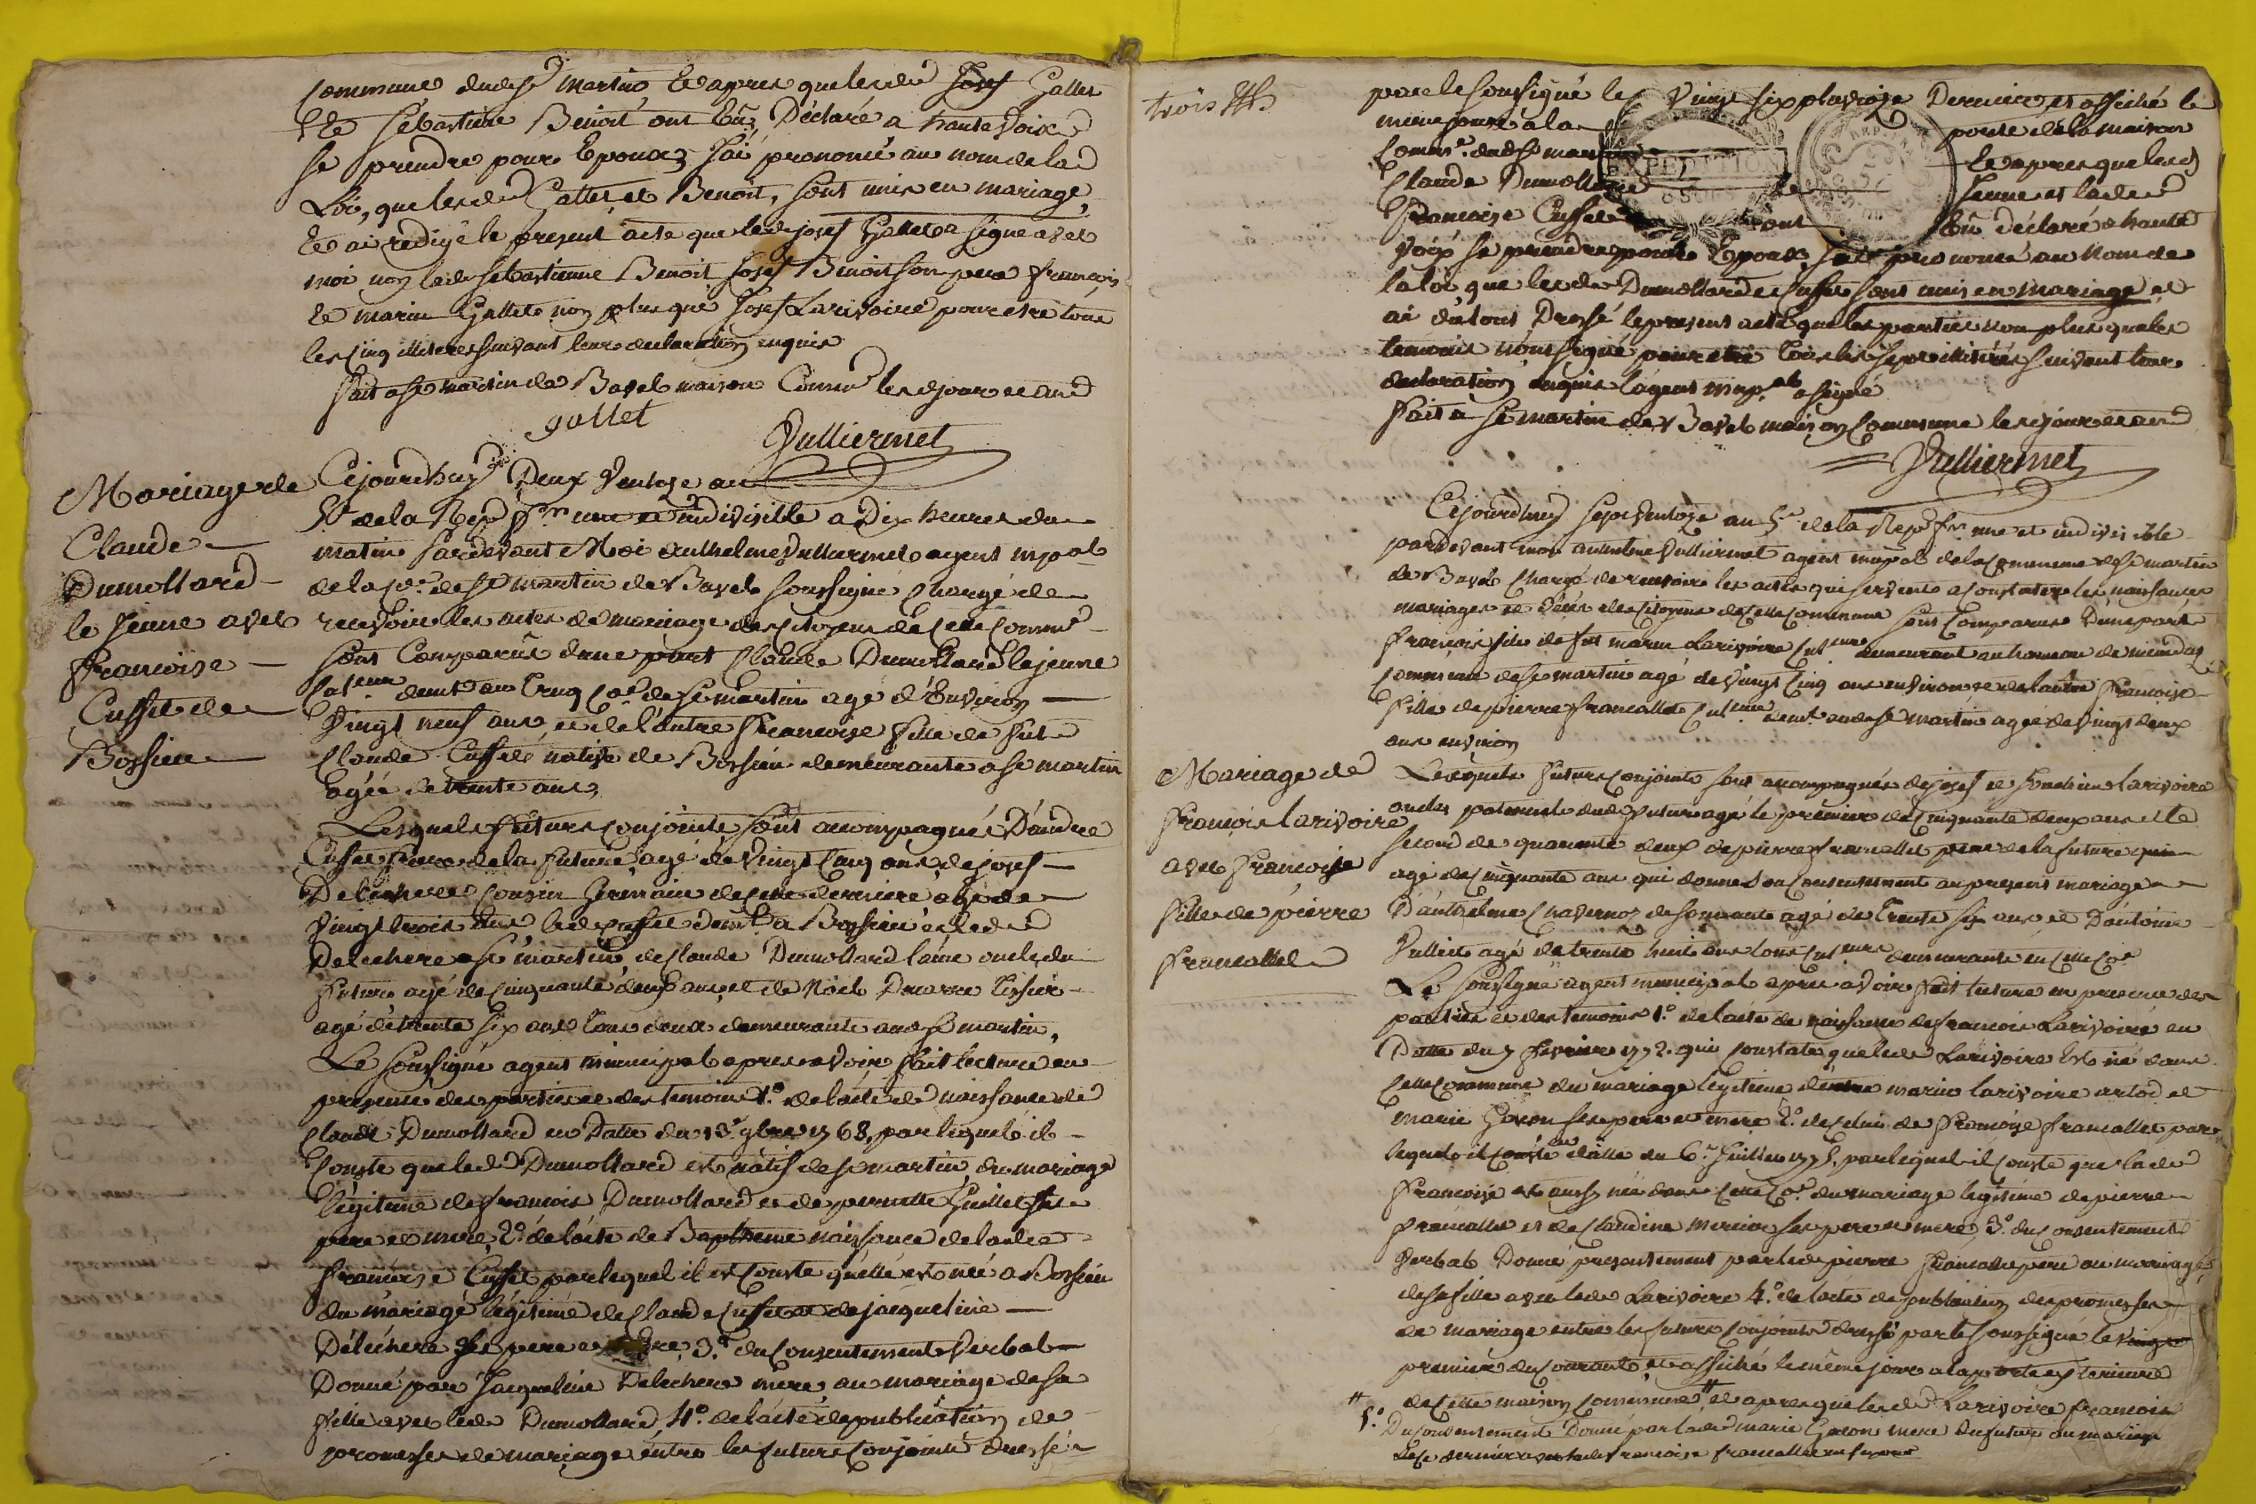 commune dud. St martin Et apres que lesd. Josef Gallet
Et Sébastiene Benoit ont Eû Déclaré a haute voix
se prendre pour Epoux, J'ai prononcé au nom de la
Loi, que lesd. Gallet et Benoit, sont unis en mariage,
Et ai redigé le present acte que led. josef Gallet a signé avec
moi non lad. sebastienne Benoit, Josef Benoit son pere francois
Et marin Gallet non plus que Josef Larivoire pour etre tous
les cinq illiteres suivant leur declaration enquis
fait a St martin de Bavel maison Comm.e lesd. jour et an
gallet
Vulliermet
Mariage de
Claude
Dumollard
le jeune avec
francoise
Cusset de
Bossieu
Cejourdhuy Deux Ventoze an
5e de la Rep. f.se une et indivisible a Dix heures du
matin pardevant Moi anthelme Vulliermet agent mpal
de la Co.e de St martin de Bavel soussigné chargé de
recevoir les actes de mariage des citoyens de cette Comm.e
sont Comparus d'une part Claude Dumollard le jeune
cul.teur dem.t au Cruq Co.e de St martin agé d'Environ
Vingt neuf ans, et de l'autre Francoise fille de fut
Claude Cusset native de Bossieu demeurante a St martin
agée de trente ans,
Lesquels futurs conjoints sont accompagnés D'andre
Cusset frere de la future, agé de Vingt Cinq ans, de josef
Delechere cousin Germain de cette derniere agé de
Vingt trois ans led. Cusset dem.t a Bossieu et led.
Delechere a St martin, de Claude Dumollard l'ainé oncle du
futur agé de cinquante deux ans, et de Noël Ducarre tissier
agé de trente six ans tous deux demeurants aud. St martin,
Le soussigné agent municipal apres avoir fait lecture en
presence des parties et des temoins 1.o de l'acte de naissance de
Claude Dumollard en Date du 13 9bre 1768, par lequel il
Conste que led. Dumollard est natif de St martin du mariage
legitime de francois Dumollard et de pernette Guillet ses
pere et mere, 2.o de l'acte de Baptheme naissance de lad.
francoise Cusset par lequel il est Conste qu'elle est née a Bossieu
du mariage légitime de Claude Cusset et de jacqueline
Délechere ses pere et mere, 3.o du Consentement Verbal
Donné par Jacqueline Delechere mere, au mariage de sa
fille avec led. Dumollard, 4.o de l'acte de publication de
promesses de mariage entre les futurs conjoints dressé
trois
par le soussigné le Vingt six pluviose Dernier et affiché le
meme jour a la porte de la maison
Comm.e dud. St martin Et apres que led.
Claude Dumollard le Jeune et lad.
Francoise Cusset ont Eû déclaré a haute
Voix se prendre pour Epoux, J'ai prononcé au Nom de
la loi que lesd. Dumollard et Cusset sont unis en mariage, et
ai du tout Dressé le present acte que les parties non plus que les
temoins n'ont signé pour etre tous les sept illiteres suivant leur
declaration enquis l'agent mnp.al a signé
Fait a St martin de Bavel maison Commune lesd. jour et an
Vulliermet
Cejourdhuy sept Ventoze an 5.e de la Rep. fr. une et indivisible
pardevant moi anthelme Vulliermet agent mnpal de la Commune de St martin
de Bavel Chargé de recevoir les actes qui servent a constater les naissances
mariages et décès des citoyens de cette Commune sont Comparus D'une part
francois fils de fut marin Larivoire cul.teur demeurant au hameau de
commune de St martin agé de Vingt Cinq ans environ et de l'autre francoise
fille de pierre francallet cul.teur dem.t aud. St martin agée de Vingt deux
ans environ
Mariage de
francois larivoire
avec francoise
fille de pierre
francallet
Lesquels futurs conjoints sont accompagnés de josef et larivoire
oncles paternels dud. futur agé le premier de Cinquante deux ans et le
second de quarante deux de pierre francallet pere de la future
agé de cinquante ans qui donne son consentement au present mariage
D'anthelme Chavernoz de agé de Trente six ans et D'antoine
Vulliet agé de trente huit ans tous cul.teurs demeurants en cette Co.e
Le soussigné agent municipal apres avoir fait lecture en presence des
parties et des temoins 1.o de l'acte de naissance de francois Larivoire en
Datte du 7 fevrier 1772. qui constate que led. Larivoire Est né dans
cette commune du mariage legitime d'entre marin larivoire artod et
marie Gavon ses pere et mere 2.o de celui de francoise francallet
en datte du 6.e Juillet 1775, par lequel il conste que lad.
francoise est aussi née dans cette Co.e du mariage legitime de pierre
francallet et de claudine mercier ses pere et mere, 3.o du Consentement
Verbal Donné presentement par led. pierre francallet pere au mariage
de sa fille avec led. Larivoire 4.o de l'acte de publication des promesses
de mariage entre les futurs conjoints dressé par le soussigné le
premier du courant, et affiché le même jour a la porte exterieure
de cette maison commune # et apres que led. Larivoire francois
# 5.o Du consentement Donné par lad. marie Gavon mere du futur au mariage
de ce dernier avec lad. francoise francallet